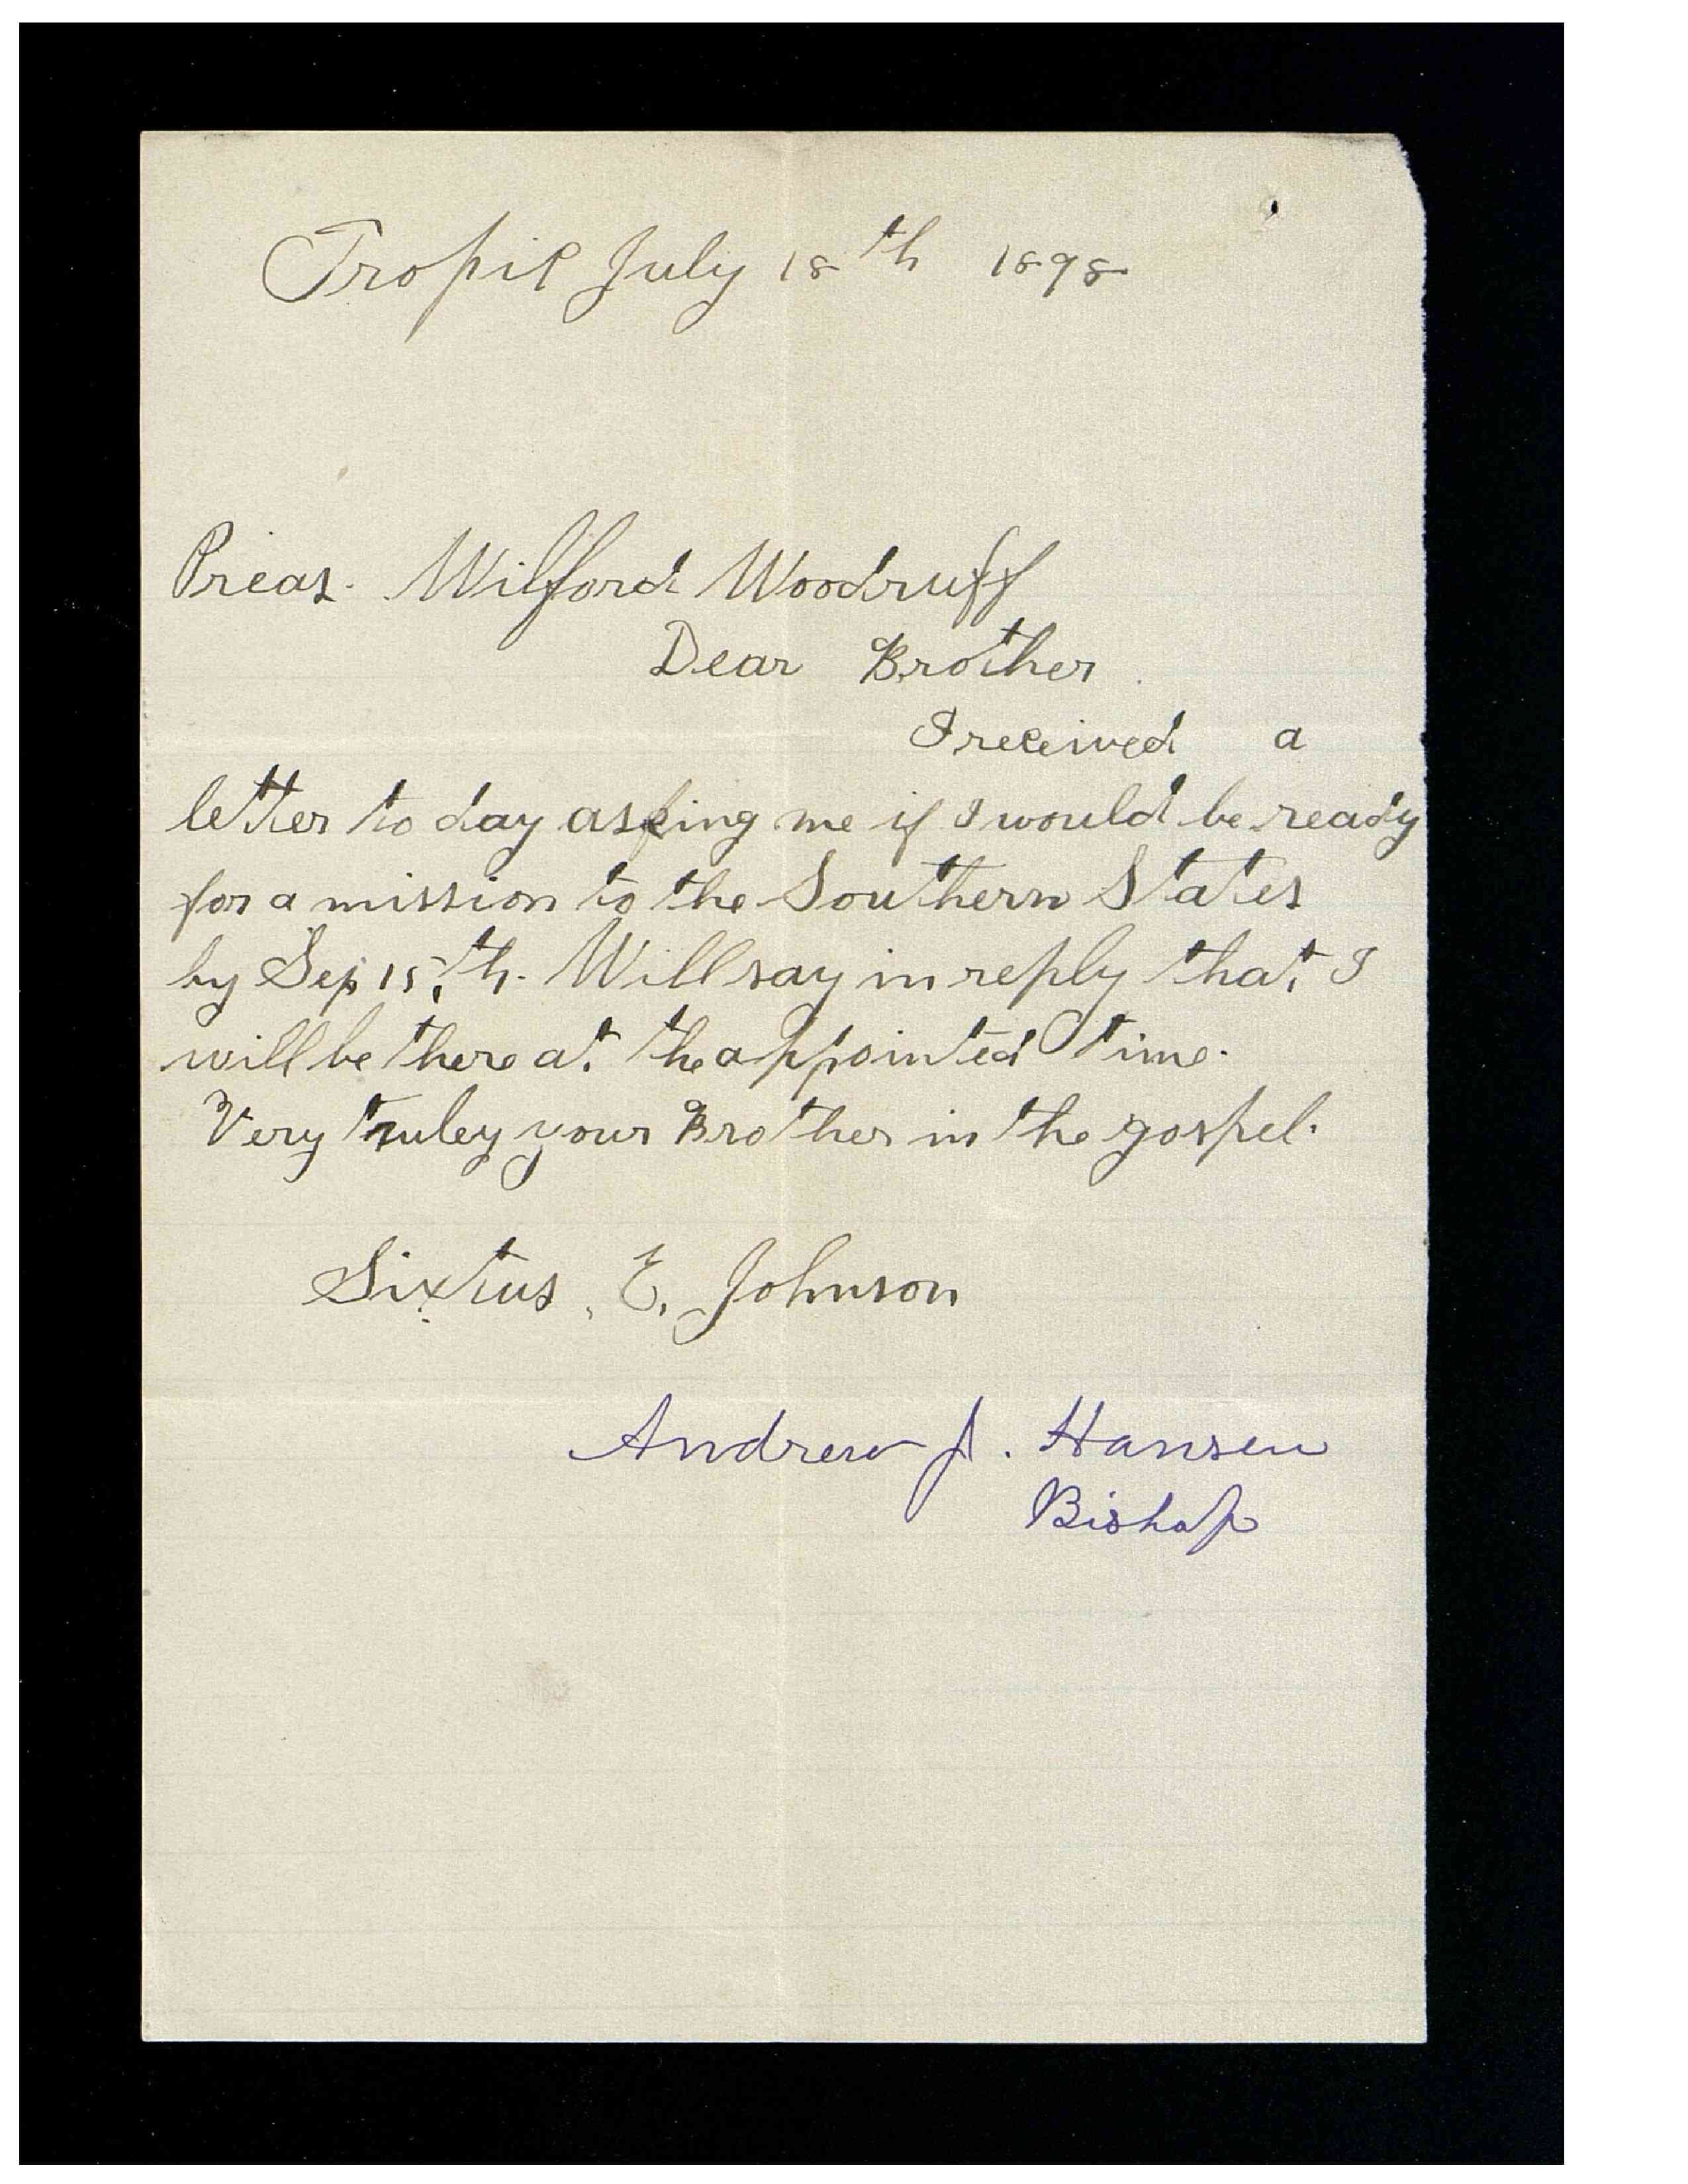 Tropic July 18th 1898
Preas. Wilford Woodruff
Dear Brother
I received a
letter to day asking me if I would be ready
for a mission to the Southern States
by Sep 15th. Will say in reply that I
will be there at the appointed time.
Very truley your Brother in the gospel.
Sixtus. E. Johnson
Andrew J. Hansen
Bishop